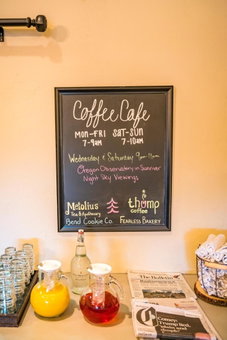 Coffee Cafe
MON-FRI SAT-SUN
7-9am 7-10am
Wednesday & Saturday 9pm-11pm
Oregon Observatory in Sunriver
Night Sky Viewings
Metolius thump
Tea & Apothecary coffee
Bend Cookie Co. Fearless Bakery
The Bulletin
Comey:
Trump lied,